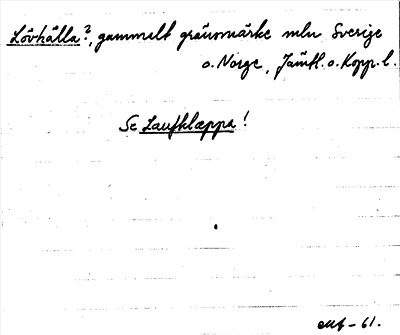 Lövhälla?, gammelt gränsmärke mln Sverige
o. Norge, Jämtl. o. Kopp. l.
Se Laufklæppa!
-61.